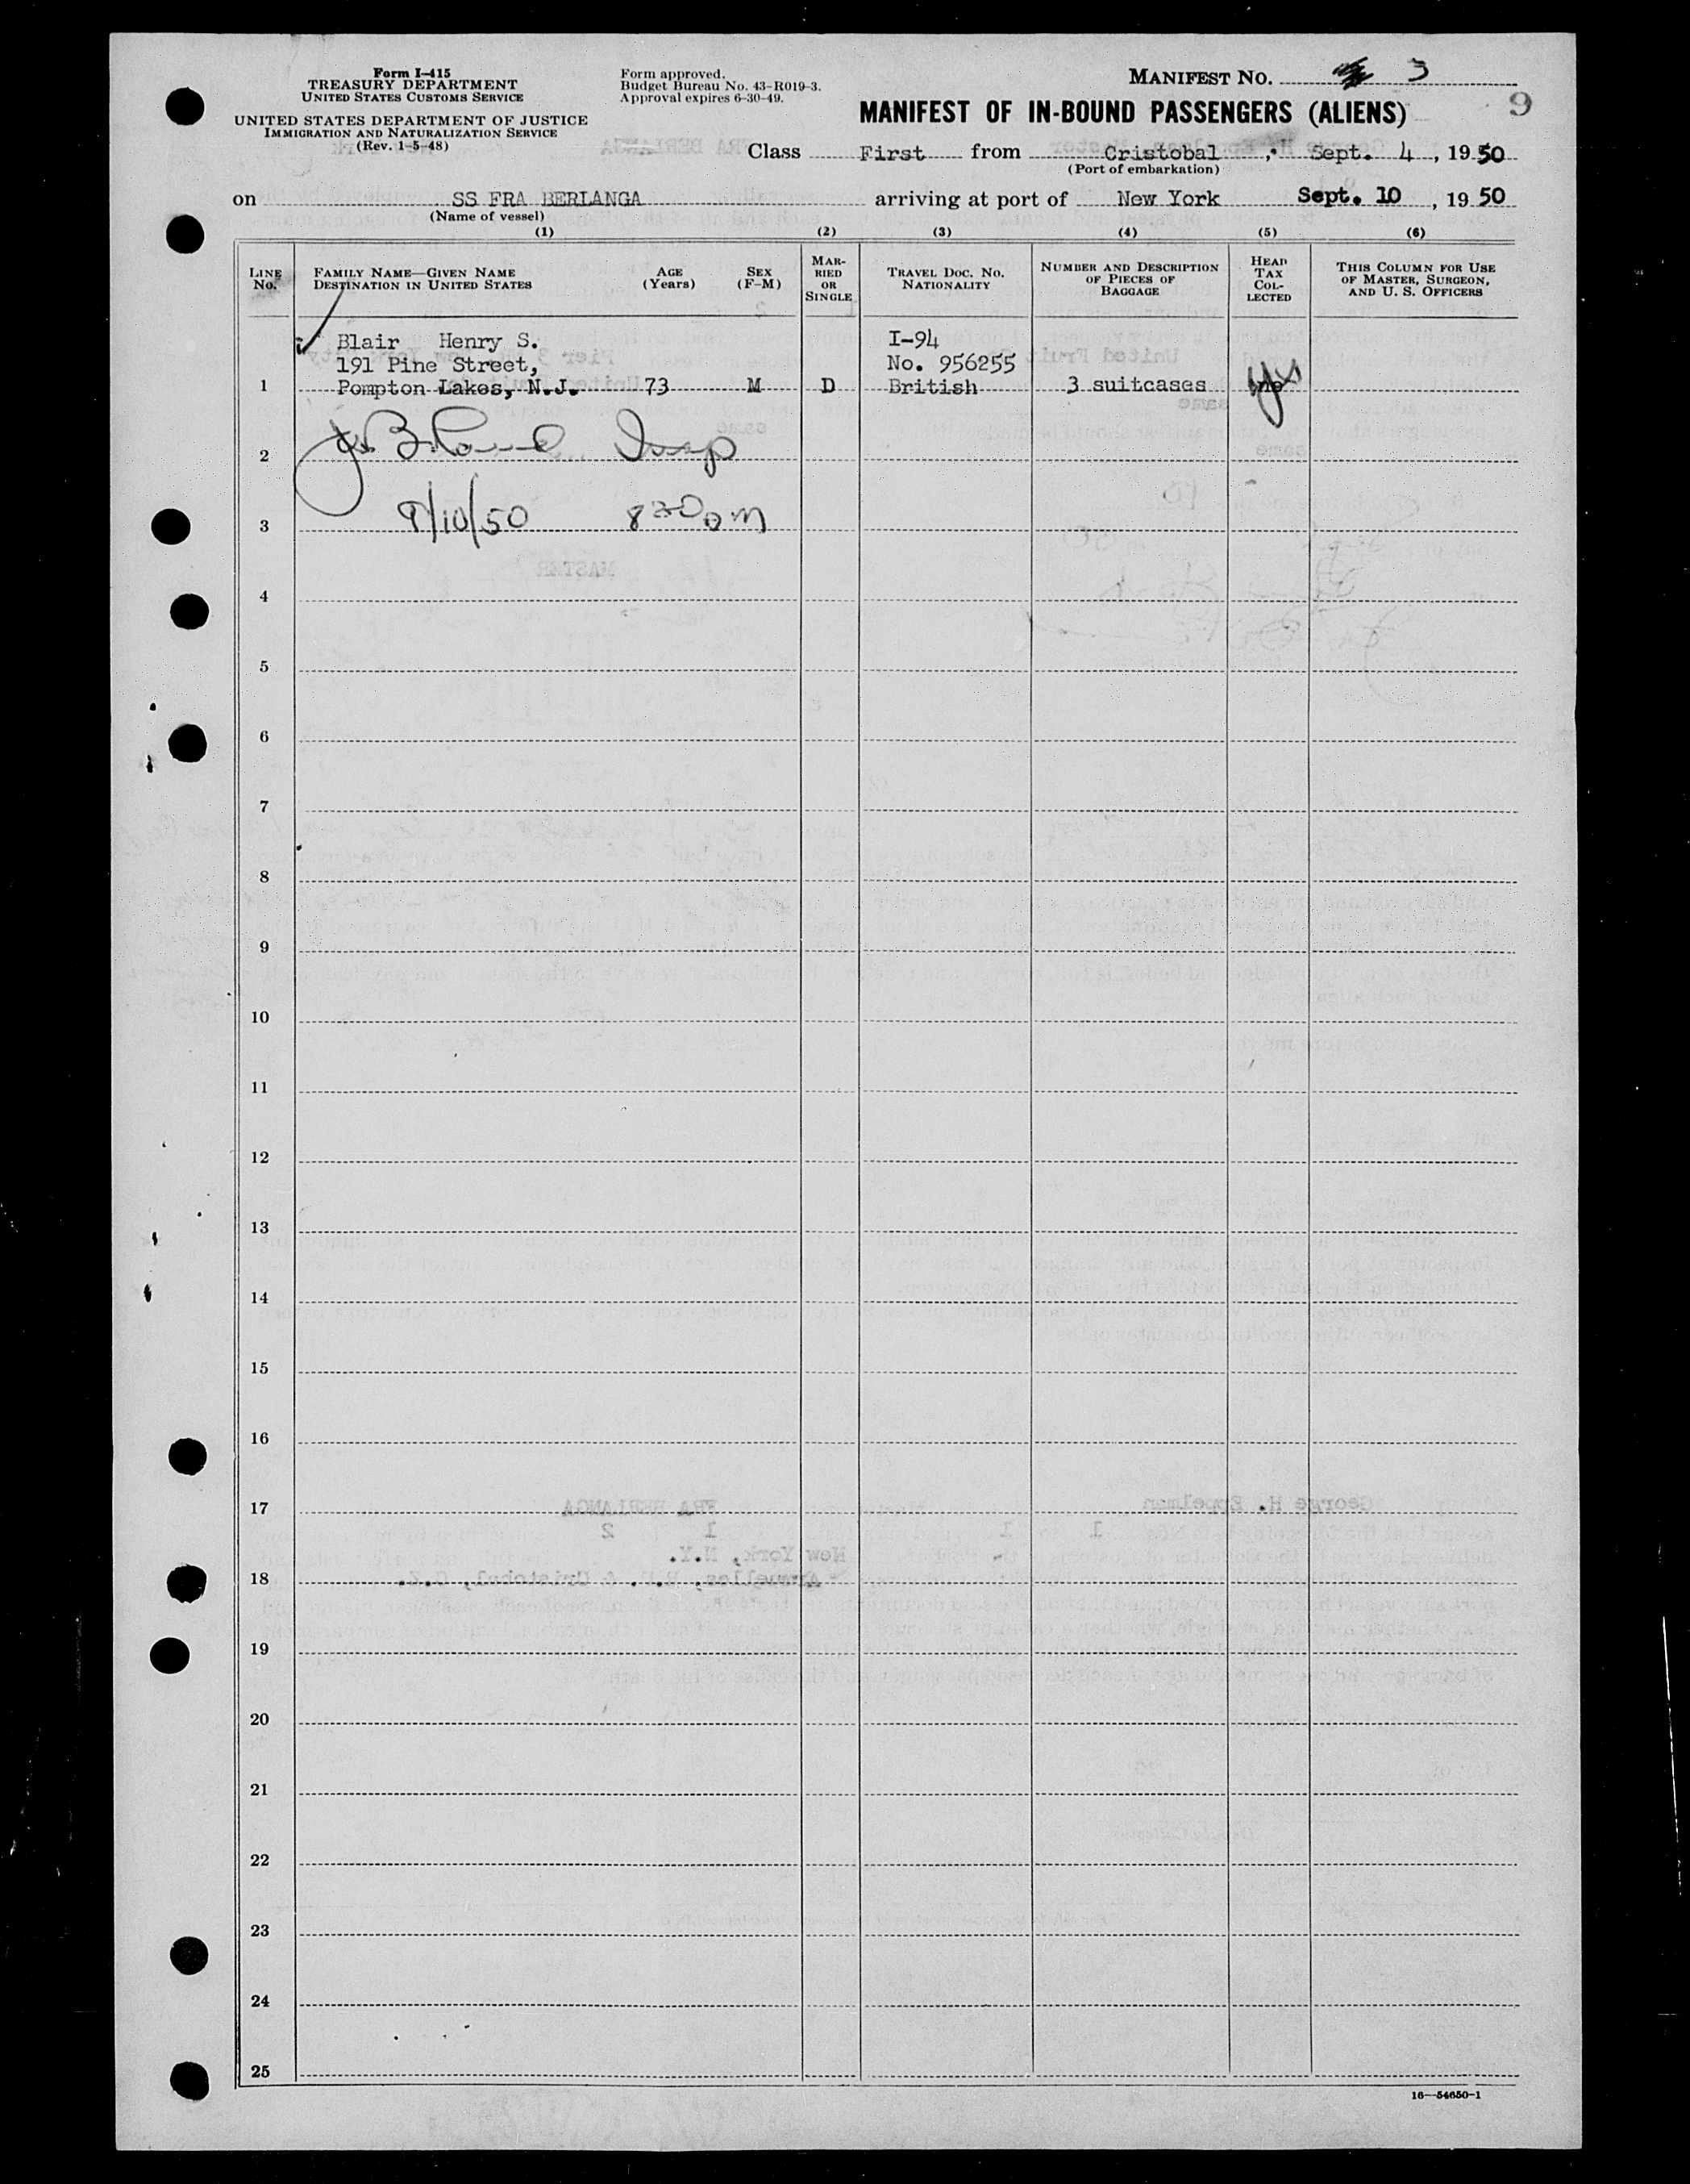 Form I-415
TREASURY DEPARTMENT
UNITED STATES CUSTOMS SERVICE
UNITED STATES DEPARTMENT OF JUSTICE
IMMIGRATION AND NATURALIZATION SERVICE
(Rev. 1-5-48)
Form approved.
Budget Bureau No. 43-R019-3.
Approval expires 6-30-49.
MANIFEST No. 3
9
MANIFEST OF IN-BOUND PASSENGERS (ALIENS)
Class First from Cristobal, Sept. 4, 1950
(Port of embarkation)
on SS FRA BERLANGA arriving at port of New York Sept. 10, 1950
(Name of vessel)
(1) (2) (3) (4) (5) (6)
LINE No.
FAMILY NAME—GIVEN NAME
DESTINATION IN UNITED STATES
AGE (Years)
SEX (F-M)
MARRIED OR SINGLE
TRAVEL DOC. NO.
NATIONALITY
NUMBER AND DESCRIPTION OF PIECES OF BAGGAGE
HEAD TAX COLLECTED
THIS COLUMN FOR USE OF MASTER, SURGEON, AND U. S. OFFICERS
Blair Henry S. I-94
191 Pine Street, No. 956255
1 Pompton Lakes, N.J. 73 M D British 3 suitcases yes
2 Insp
3 9/10/50 830 am
4
5
6
7
8
9
10
11
12
13
14
15
16
17
18
19
20
21
22
23
24
25
16—54650-1